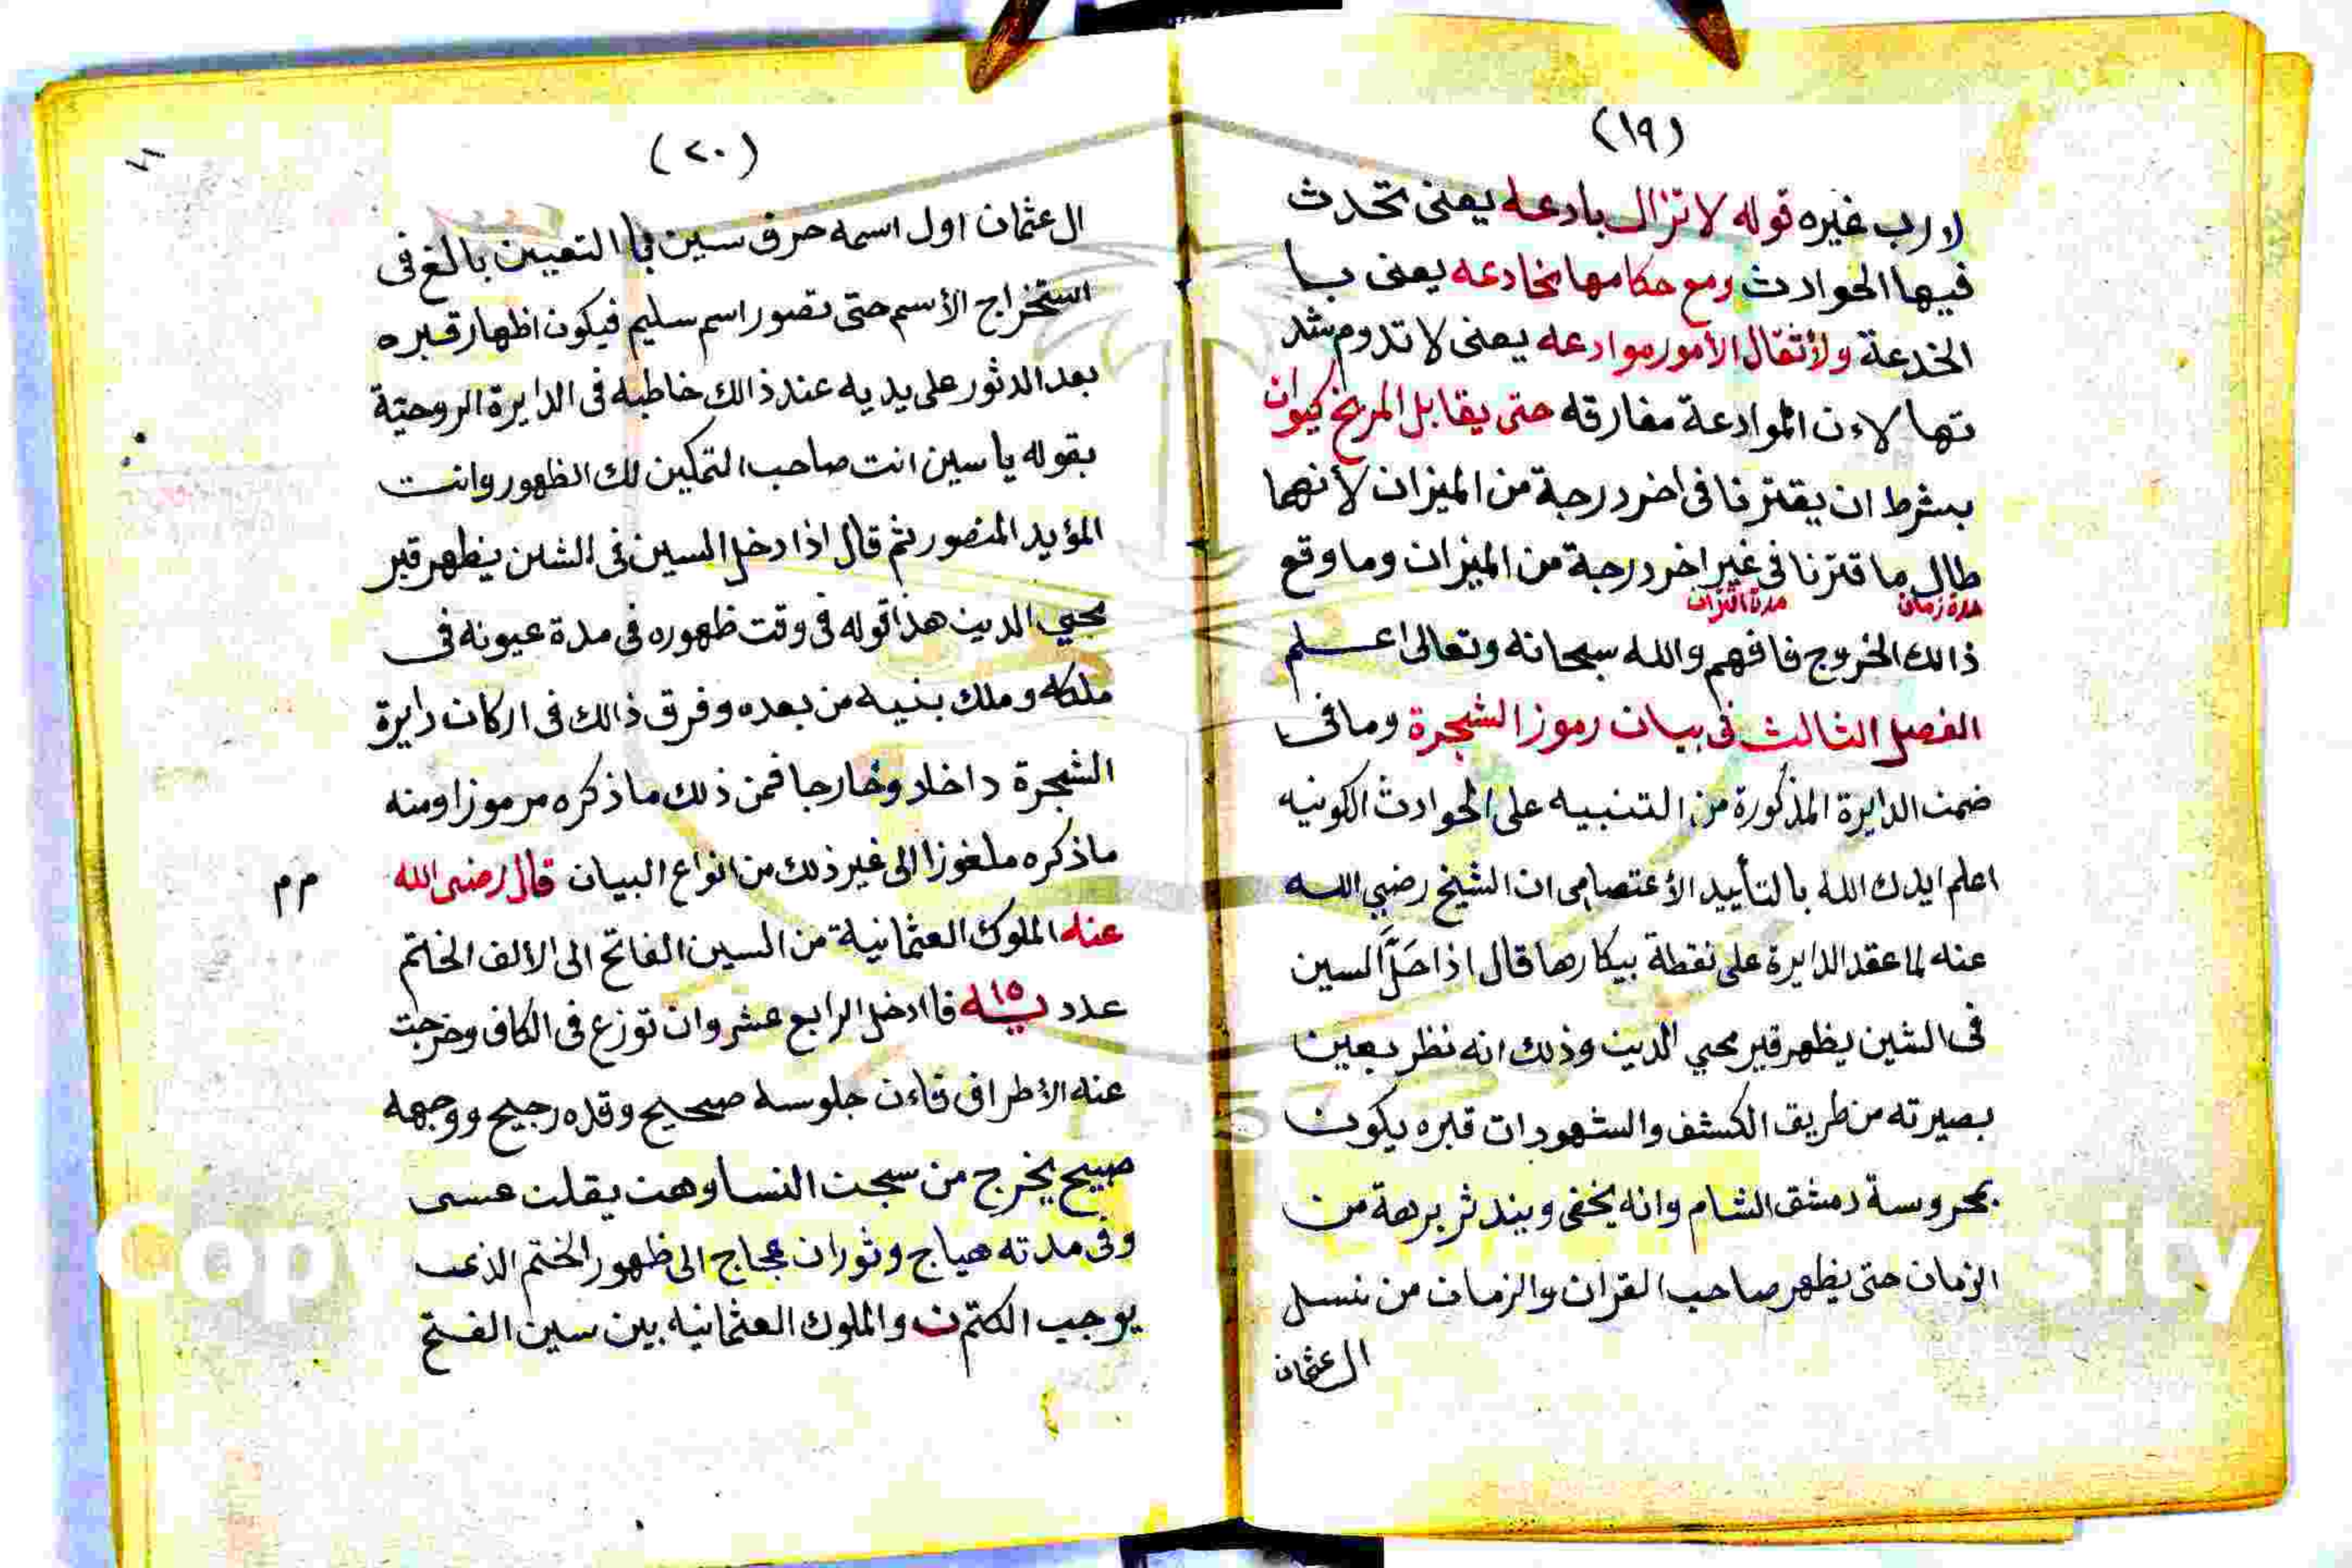 (١٩)
لا رب غيره قوله لا تزال بادعه يعنى تحدث
فيها الحوادث ومع حكامها مخادعه يعنى با
الخدعة ولأثقال الأمور موادعه يعنى لا تدوم شد
تها لاءن الموادعة مفارقه حتى يقابل المريخ كيوان
بشرط ان يقترنا فى اخر درجة من الميزان لأنهما
طال ما قترنا فى غير اخر درجة من الميزان وما وقع
مدة زمان مدة اقتران
ذالك الخروج فافهم والله سبحانه وتعالى اعلم
الفصل الثالث فى بيان رموز الشجرة وما فى
ضمن الدايرة المذكورة من التنبيه على الحوادث الكونيه
اعلم ايدك الله بالتأييد الأعتصامى ان الشيخ رضي الله
عنه لما عقد الدايرة على نقطة بيكارها قال اذا حَلَّ السين
فى الشين يظهر قبر محيي الدين وذلك انه نظر بعين
بصيرته من طريق الكشف والشهود ان قبره يكون
بمحروسة دمشق الشام وانه يخفى ويندثر برهة من
الزمان حتى يظهر صاحب القران والزمان من نسل
ال عثمان
(٢٠)
ال عثمان اول اسمه حرف سين فيا التعيين بالغ فى
استخراج الأسم حتى تصور اسم سليم فيكون اظهار قبره
بعد الدثور على يديه عند ذالك خاطبه فى الدايرة الروحية
بقوله يا سين انت صاحب التمكين لك الظهور وانت
المؤيد المنصور ثم قال اذا دخل السين فى الشين يظهر قبر
محيي الدين هذا قوله فى وقت ظهوره فى مدة عيونه فى
ملكه وملك بنيه من بعده وفرق ذالك فى اركان دايرة
الشجرة داخلا وخارجا فمن ذلك ما ذكره مرموزا ومنه
ما ذكره ملغوزا الى غير ذلك من انواع البيان قال رضى الله
م م
عنه الملوك العثمانية من السين الفاتح الى الألف الختم
عدد يـه ١٥ فاادخل الرابع عشر وان توزع فى الكاف وخرجت
عنه الأطراف فاءن جلوسه صحيح وقده رجيح ووجهه
صبيح يخرج من سجن النسا وهن يقلن عسى
وفى مدته هياج وثوران عجاج الى ظهور الختم الذى
يوجب الكتم ن والملوك العثمانيه بين سين الفتح